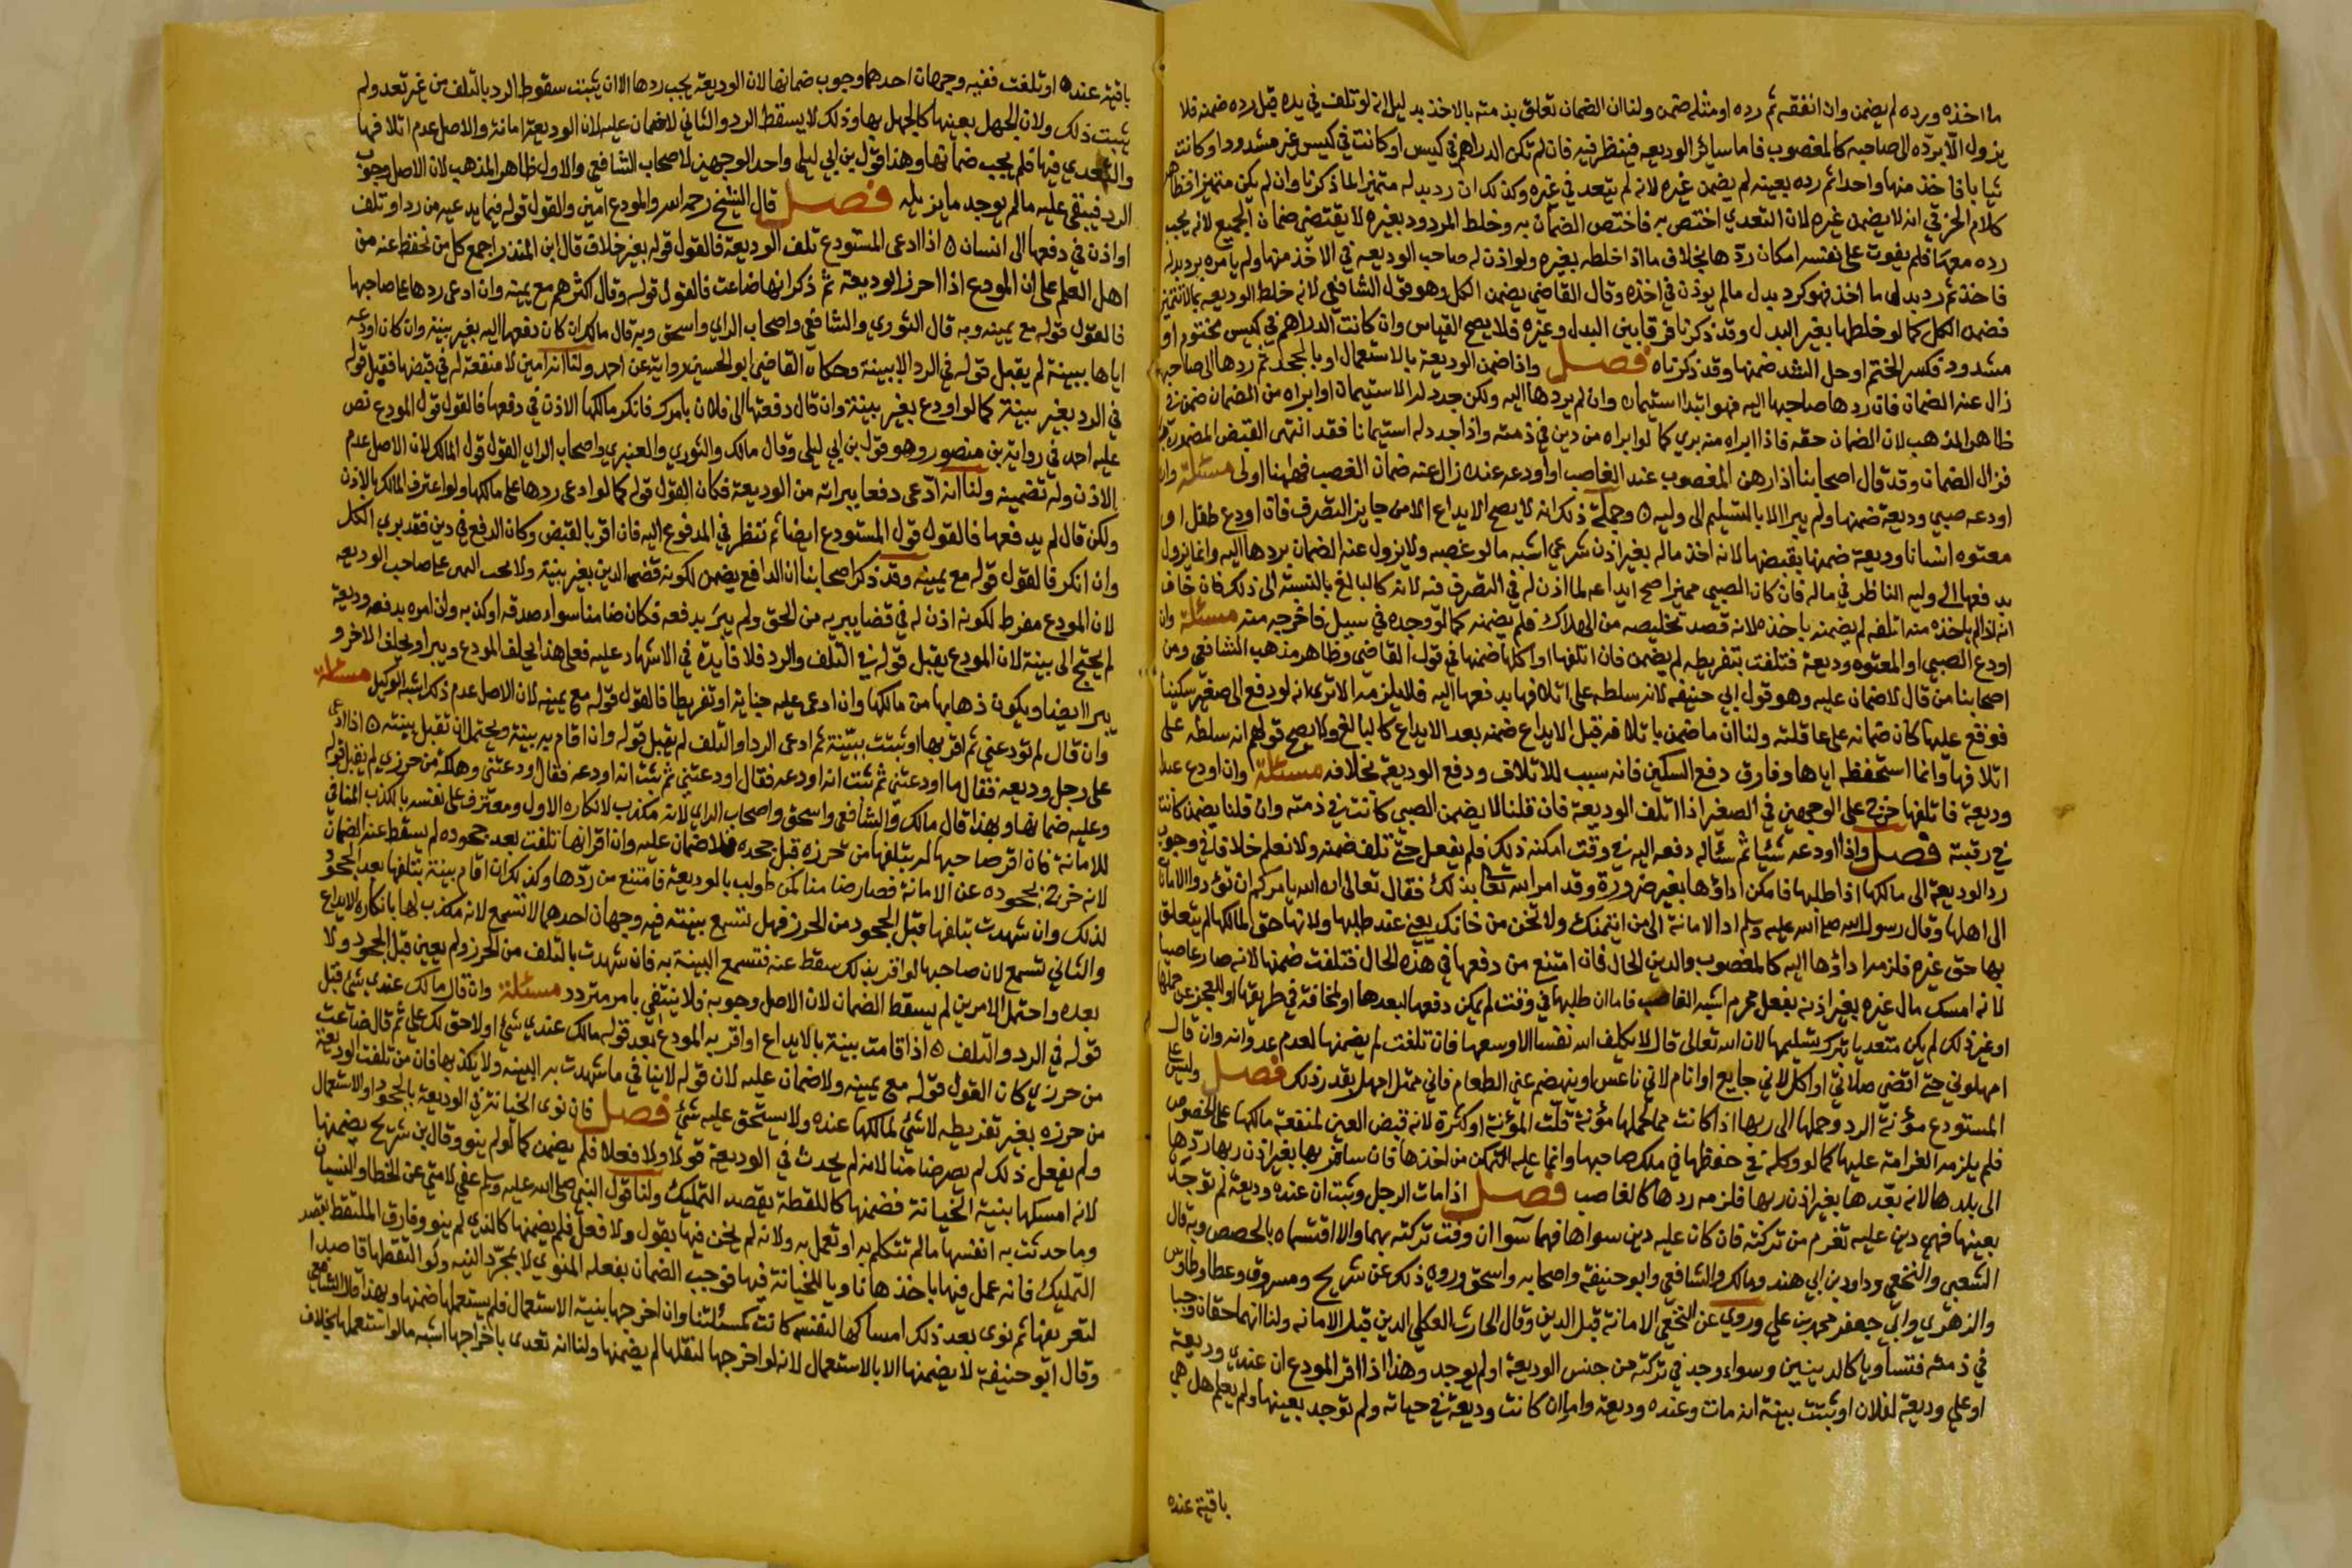 ما اخذه ورده لم يضمن وان انفقه ثم رده او مثله ضمن ولنا ان الضمان تعلق بذمته بالاخذ بدليل انه لو تلف في يده قبل رده ضمنه فلا
يزول الا برده الى صاحبه كالمغصوب فاما سائر الوديعه فينظر فيه فان لم تكن الدراهم في كيس او كانت في كيس غير مشدود او كانت
ثيابا فاخذ منها واحدا ثم رده بعينه لم يضمن غيره لانه لم يتعد في غيره وكذلك ان رد بدله متميزا لما ذكرنا وان لم يكن متميزا فظاهر
كلام الخرقي انه لا يضمن غيره لان التعدي اختص به فاختص الضمان به وخلط المردود بغيره لا يقتضي ضمان الجميع لانه يجب
رده معها فلم يفوت على نفسه امكان ردها بخلاف ما اذا خلطه بغيره ولو اذن له صاحب الوديعه في الاخذ منها ولم يامره برد بدله
فاخذ ثم رد بدل ما اخذ فهو كرد بدل مالم يوذن في اخذه وقال القاضي يضمن الكل وهو قول الشافعي لانه خلط الوديعه بما لا تتميز
فضمن الكل كما لو خلطها بغير البدل وقد ذكرنا فرقا بين البدل وغيره فلا يصح القياس وان كانت الدراهم في كيس مختوم او
مشدود فكسر الختم او حل الشد ضمنها وقد ذكرناه فصل واذا ضمن الوديعة بالاستعمال او بالجحد ثم ردها الى صاحبها
زال عنه الضمان فان ردها صاحبها اليه فهو ابتدا استيمان وان لم يردها اليه ولكن جدد له الاستيمان او ابراه من الضمان ضمن في
ظاهر المذهب لان الضمان حقه فاذا ابراه منه بري كما لو ابراه من دين في ذمته واذا جدد له استيمانا فقد انتهى القبض المضمون به
فزال الضمان وقد قال اصحابنا اذا رهن المغصوب عند الغاصب او اودعه عنده زال عنه ضمان الغصب فههنا اولى مسئلة وان
اودعه صبي وديعة ضمنها ولم يبرا الا بالتسليم الى وليه وجملة ذلك انه لا يصح الايداع الا من جايز التصرف فان اودع طفل او
معتوه انسانا وديعة ضمنها بقبضها لانه اخذ ماله بغير اذن شرعي اشبه ما لو غصبه ولا يزول عنه الضمان بردها اليه وانما يزول
بدفعها الى وليه الناظر في ماله فان كان الصبي مميزا صح ايداعه لما اذن له في التصرف فيه لانه كالبالغ بالنسبة الى ذلك فان خاف
انه اذا لم ياخذه منه اتلفه لم يضمنه باخذه لانه قصد تخليصه من الهلاك فلم يضمنه كما لو وجده في سبيل فاخرجه منه مسئلة وان
اودع الصبي او المعتوه وديعة فتلفت بتفريطه لم يضمن فان اتلفها او اكلها ضمنها في قول القاضي وظاهر مذهب الشافعي ومن
اصحابنا من قال لا ضمان عليه وهو قول ابي حنيفه لانه سلطه على اتلافها بدفعها اليه فلا يلزمه الا ترى انه لو دفع الى صغير سكينا
فوقع عليها كان ضمانه على عاقلته ولنا ان ما ضمن باتلافه قبل الايداع ضمنه بعد الايداع كالبالغ ولا يصح قولهم انه سلطه على
اتلافها وانما استحفظه اياها وفارق دفع السكين فانه سبب للاتلاف ودفع الوديعة بخلافه مسئلة وان اودع عبدا
وديعة فاتلفها خرج على الوجهين في الصغير اذا اتلف الوديعة فان قلنا لا يضمن الصبي كانت في ذمته وان قلنا يضمن كانت
في رقبته فصل واذا اودعه شيئا ثم سئاله دفعه اليه في وقت امكنه ذلك فلم يفعل حتى تلف ضمنه ولا نعلم خلافا في وجوب
رد الوديعة الى مالكها اذا طلبها فامكن اداؤها بغير ضرورة وقد امر الله تعالى بذلك فقال تعالى ان الله يامركم ان تؤدوا الامانات
الى اهلها وقال رسول الله صلى الله عليه وسلم اد الامانة الى من ائتمنك ولا تخن من خانك يعني عند طلبها ولانها حق لمالكها لم يتعلق
بها حق غيره فلزمه اداؤها اليه كالمغصوب والدين الحال فان امتنع من دفعها في هذه الحال فتلفت ضمنها لانه صار غاصبا
لانه امسك مال غيره بغير اذنه بفعل محرم اشبه الغاصب فاما ان طلبها في وقت لم يمكن دفعها لبعدها او لمخافة في طريقها او للعجز عن حملها
او غير ذلك لم يكن متعديا بترك تسليمها لان الله تعالى قال لا يكلف الله نفسا الا وسعها فان تلفت لم يضمنها لعدم عدوانه وان قال
امهلوني حتى اقضي صلاتي او اكل لاني جايع او انام لاني ناعس او ينهضم عني الطعام فاني ممتل امهل بقدر ذلك فصل وليس على
المستودع مؤنة الرد وحملها الى ربها اذا كانت مما لحملها مؤنة قلت المؤنة او كثرة لانه قبض العين لمنفعة مالكها على الخصوص
فلم يلزمه الغرامة عليها كما لو وكله في حفظها في ملك صاحبها وانما عليه التمكن من اخذها فان سافر بها بغير اذن ربها ردها
الى بلدها لانه بعدها بغير اذن ربها فلزمه ردها كالغاصب فصل اذا مات الرجل وثبت ان عنده وديعة لم توجد
بعينها فهي دين عليه تغرم من تركته فان كان عليه دين سواها فهما سوا ان وفت تركته بهما والا اقتسماه بالحصص وبه قال
الشعبي والنخعي وداود بن ابي هند ومالك والشافعي وابو حنيفة واصحابه واسحق وروي ذلك عن شريح ومسروق وعطا وطاوس
والزهري وابي جعفر محمد بن علي وروي عن النخعي الامانة قبل الدين وقال الحارث العكلي الدين قبل الامانه ولنا انهما حقان وجبا
في ذمته فتساويا كالدينين وسواء وجد في تركته من جنس الوديعة او لم يوجد وهذا اذا اقر المودع ان عندي وديعة
او علي وديعة لفلان او ثبتت بينة انه مات وعنده وديعة واما ان كانت وديعة في حياته ولم توجد بعينها ولم يعلم هل هي
باقية عنده
باقية عنده او تلفت ففيه وجهان احدهما وجوب ضمانها لان الوديعة يجب ردها الا ان يثبت سقوط الرد بالتلف من غير تعد ولم
يثبت ذلك ولان الجهل بعينها كالجهل بها وذلك لا يسقط الرد والثاني لا ضمان عليه لان الوديعة امانة والاصل عدم اتلافها
والتعدي فيها فلم يجب ضمانها وهذا قول بن ابي ليلى واحد الوجهين لاصحاب الشافعي والاول ظاهر المذهب لان الاصل وجوب
الرد فيبقى عليه مالم يوجد ما يزيله فصل قال الشيخ رحمه الله والمودع امين والقول قوله فيما يدعيه من رد او تلف
او اذن في دفعها الى انسان اذا ادعى المستودع تلف الوديعة فالقول قوله بغير خلاف قال ابن المنذر اجمع كل من نحفظ عنه من
اهل العلم على ان المودع اذا احرز الوديعة ثم ذكر انها ضاعت فالقول قوله وقال اكثرهم مع يمينه وان ادعى ردها على صاحبها
فالقول قوله مع يمينه وبه قال الثوري والشافعي واصحاب الراي واسحق وبه قال مالك ان كان دفعها اليه بغير بينة وان كان اودعه
اياها ببينة لم يقبل قوله في الرد الا ببينة وحكاه القاضي ابو الحسين رواية عن احمد ولنا انه امين لا منفعة له في قبضها فقبل قوله
في الرد بغير بينة كما لو اودع بغير بينة وان قال دفعتها الى فلان بامرك فانكر مالكها الاذن في دفعها فالقول قول المودع نص
عليه احمد في رواية بن منصور وهو قول بن ابي ليلى وقال مالك والثوري والعنبري واصحاب الراي القول قول المالك لان الاصل عدم
الاذن وله تضمينه ولنا انه ادعى دفعا يبرا به من الوديعة فكان القول قوله كما لو ادعى ردها على مالكها ولو اعترف المالك بالاذن
ولكن قال لم يدفعها فالقول قول المستودع ايضا ثم ننظر في المدفوع اليه فان اقر بالقبض وكان الدفع في دين فقد بري الكل
وان انكر فالقول قوله مع يمينه وقد ذكر اصحابنا ان الدافع يضمن لكونه قضى الدين بغير بينة ولا يجب اليمين على صاحب الوديعه
لان المودع مفرط لكونه اذن له في قضا يبريه من الحق ولم يبرى بدفعه فكان ضامنا سواء صدقه او كذبه وان امره بدفعه وديعة
لم يحتج الى بينة لان المودع يقبل قوله في التلف والرد فلا فايدة في الاشهاد عليه فعلى هذا يحلف المودع ويبرا ويحلف الاخر و
يبرا ايضا ويكون ذهابها من مالكها وان ادعى عليه جناية او تفريطا فالقول قوله مع يمينه لان الاصل عدم ذلك اشبه الوكيل مسئلة
وان قال لم تودعني ثم اقر بها او ثبتت ببينة ثم ادعى الرد او التلف لم يقبل قوله وان اقام به بينة ويحتمل ان تقبل بينته اذا ادعى
على رجل وديعة فقال ما اودعتني ثم ثبت انه اودعه فقال اودعتني ثم ثبت انه اودعه فقال اودعتني وهلكه من حرزي لم يقبل قوله
وعليه ضمانها وبهذا قال مالك والشافعي واسحق واصحاب الراي لانه مكذب لانكاره الاول ومعترف على نفسه بالكذب المنافي
للامانة فان اقر صاحبها له بتلفها من حرزه قبل جحده فلا ضمان عليه وان اقر انها تلفت بعد جحوده لم يسقط عنه الضمان
لانه خرج بجحوده عن الامانة فصار ضامنا كمن طولب بالوديعة فامتنع من ردها وكذلك ان اقام بينة بتلفها بعد الجحود
لذلك وان شهدت بتلفها قبل الجحود من الحرز فهل تسمع بينته فيه وجهان احدهما لا تسمع لانه مكذب لها بانكاره الايداع
والثاني تسمع لان صاحبها لو اقر بذلك سقط عنه فتسمع البينة به فان شهدت بالتلف من الحرز ولم يعين قبل الجحود ولا
بعده واحتمل الامرين لم يسقط الضمان لان الاصل وجوبه فلا ينتفي بامر متردد مسئلة وان قال مالك عندي شئ قبل
قوله في الرد والتلف اذا قامت بينة بالايداع او اقر به المودع بعد قوله مالك عندي شئ او لا حق لك علي ثم قال ضاعت
من حرزي كان القول قوله مع يمينه ولا ضمان عليه لان قوله لا ينافي ما شهدت به البينه ولا يكذبها فان من تلفت الوديعة
من حرزه بغير تفريطه لا شئ لمالكها عنده ولا يستحق عليه شئ فصل فان نوى الخيانة في الوديعة بالجحود او الاستعمال
ولم يفعل ذلك لم يصر ضامنا لانه لم يحدث في الوديعة قولا ولا فعلا فلم يضمن كما لو لم ينو وقال بن شريح يضمنها
لانه امسكها بنية الخيانة فضمنها كاللقطة بقصد التمليك ولنا قول النبي صلى الله عليه وسلم عفي لامتي عن الخطا والنسيان
وما حدثت به انفسها مالم تتكلم به او تعمل به ولانه لم يخن فيها بقول ولا فعل فلم يضمنها كالذي لم ينو وفارق الملتقط بقصد
التمليك فانه عمل فيها باخذها ناويا للخيانة فيها فوجب الضمان بفعله المنوي لا بمجرد النيه ولو التقطها قاصدا
لتعريفها ثم نوى بعد ذلك امساكها لنفسه كانت كمسئلتنا وان اخرجها بنية الاستعمال فلم يستعملها ضمنها وبهذا قال الشافعي
وقال ابو حنيفة لا يضمنها الا بالاستعمال لانه لو اخرجها لنقلها لم يضمنها ولنا انه تعدى باخراجها اشبه ما لو استعملها بخلاف